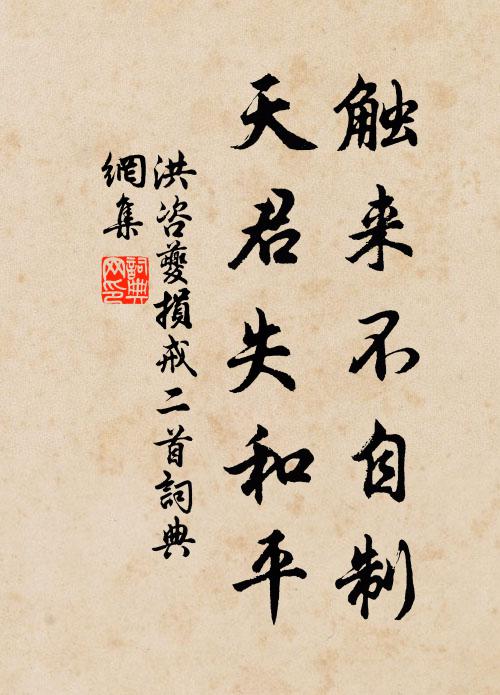 触来不自制
天君失和平
洪咨夔損戒二首詞典
網集
詞典
网印